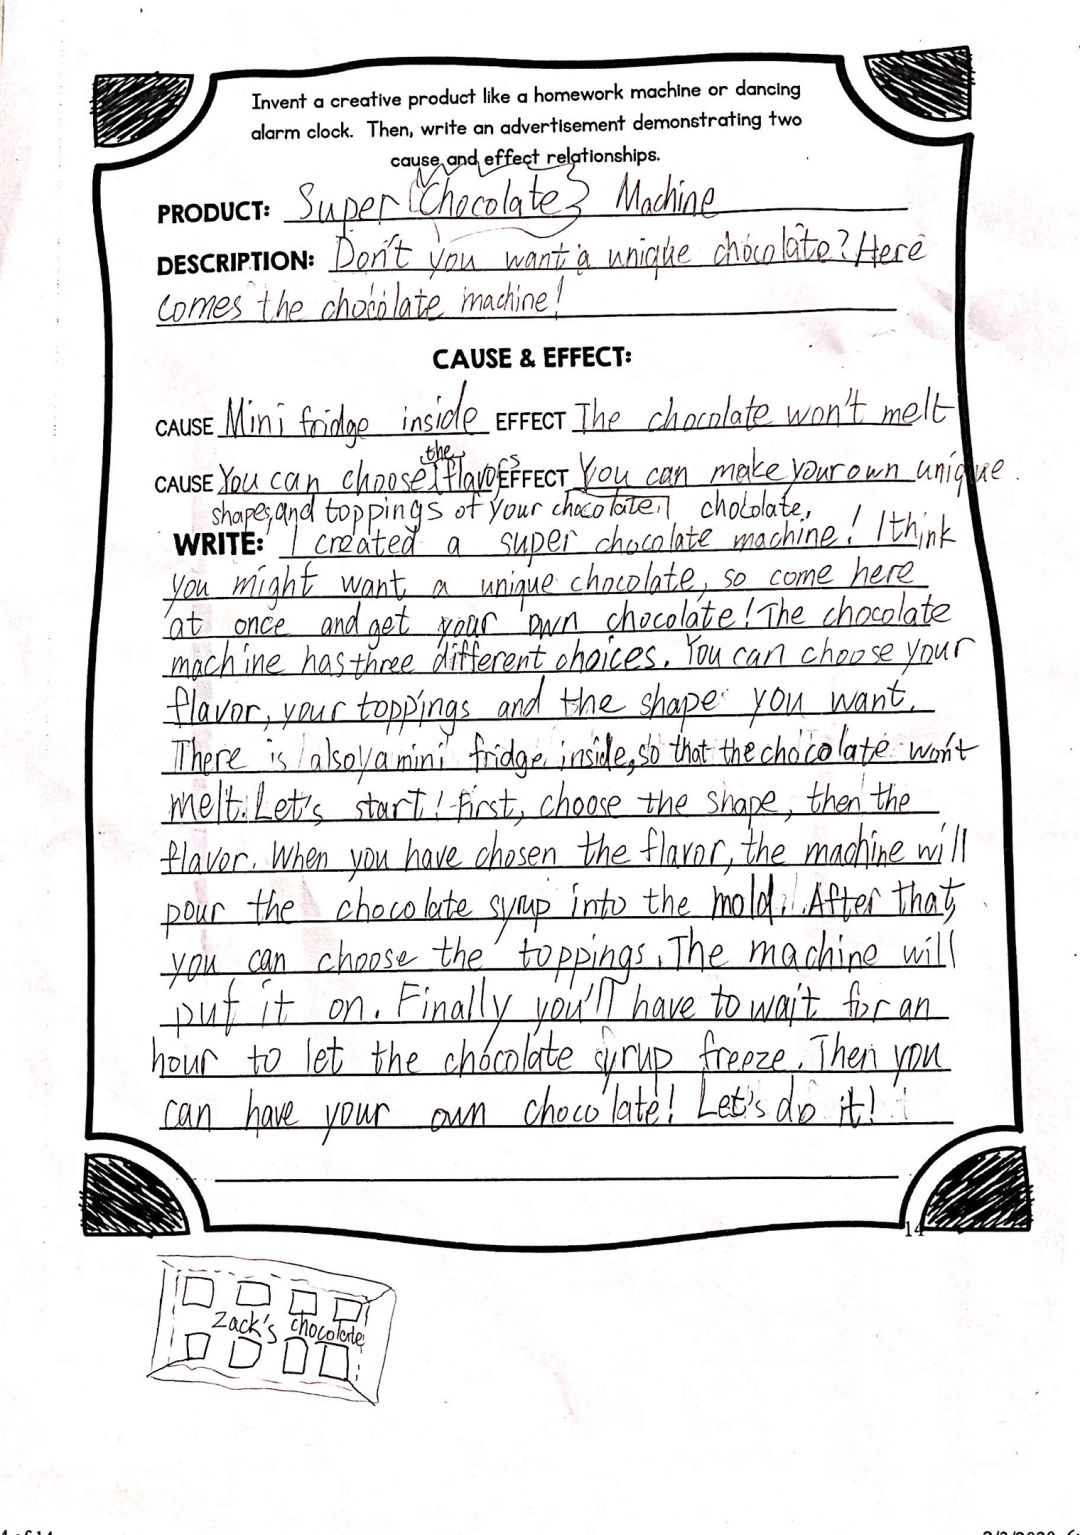 Invent a creative product like a homework machine or dancing
alarm clock. Then, write an advertisement demonstrating two
cause and effect relationships.
PRODUCT: Super Chocolate Machine
DESCRIPTION: Don't you want a unique chocolate? Here
comes the chocolate machine!
CAUSE & EFFECT:
CAUSE Mini fridge inside EFFECT The chocolate won't melt
CAUSE You can choose the flavors EFFECT You can make your own unique
shapes, and toppings of your chocolate. chocolate.
WRITE: I created a super chocolate machine! I think
you might want a unique chocolate, so come here
at once and get your own chocolate! The chocolate
machine has three different choices. You can choose your
flavor, your toppings and the shape you want.
There is also a mini fridge inside, so that the chocolate won't
melt. Let's start! First, choose the shape, then the
flavor. When you have chosen the flavor, the machine will
pour the chocolate syrup into the mold. After that,
you can choose the toppings. The machine will
put it on. Finally you'll have to wait for an
hour to let the chocolate syrup freeze. Then you
can have your own chocolate! Let's do it!
14
Zack's chocolate